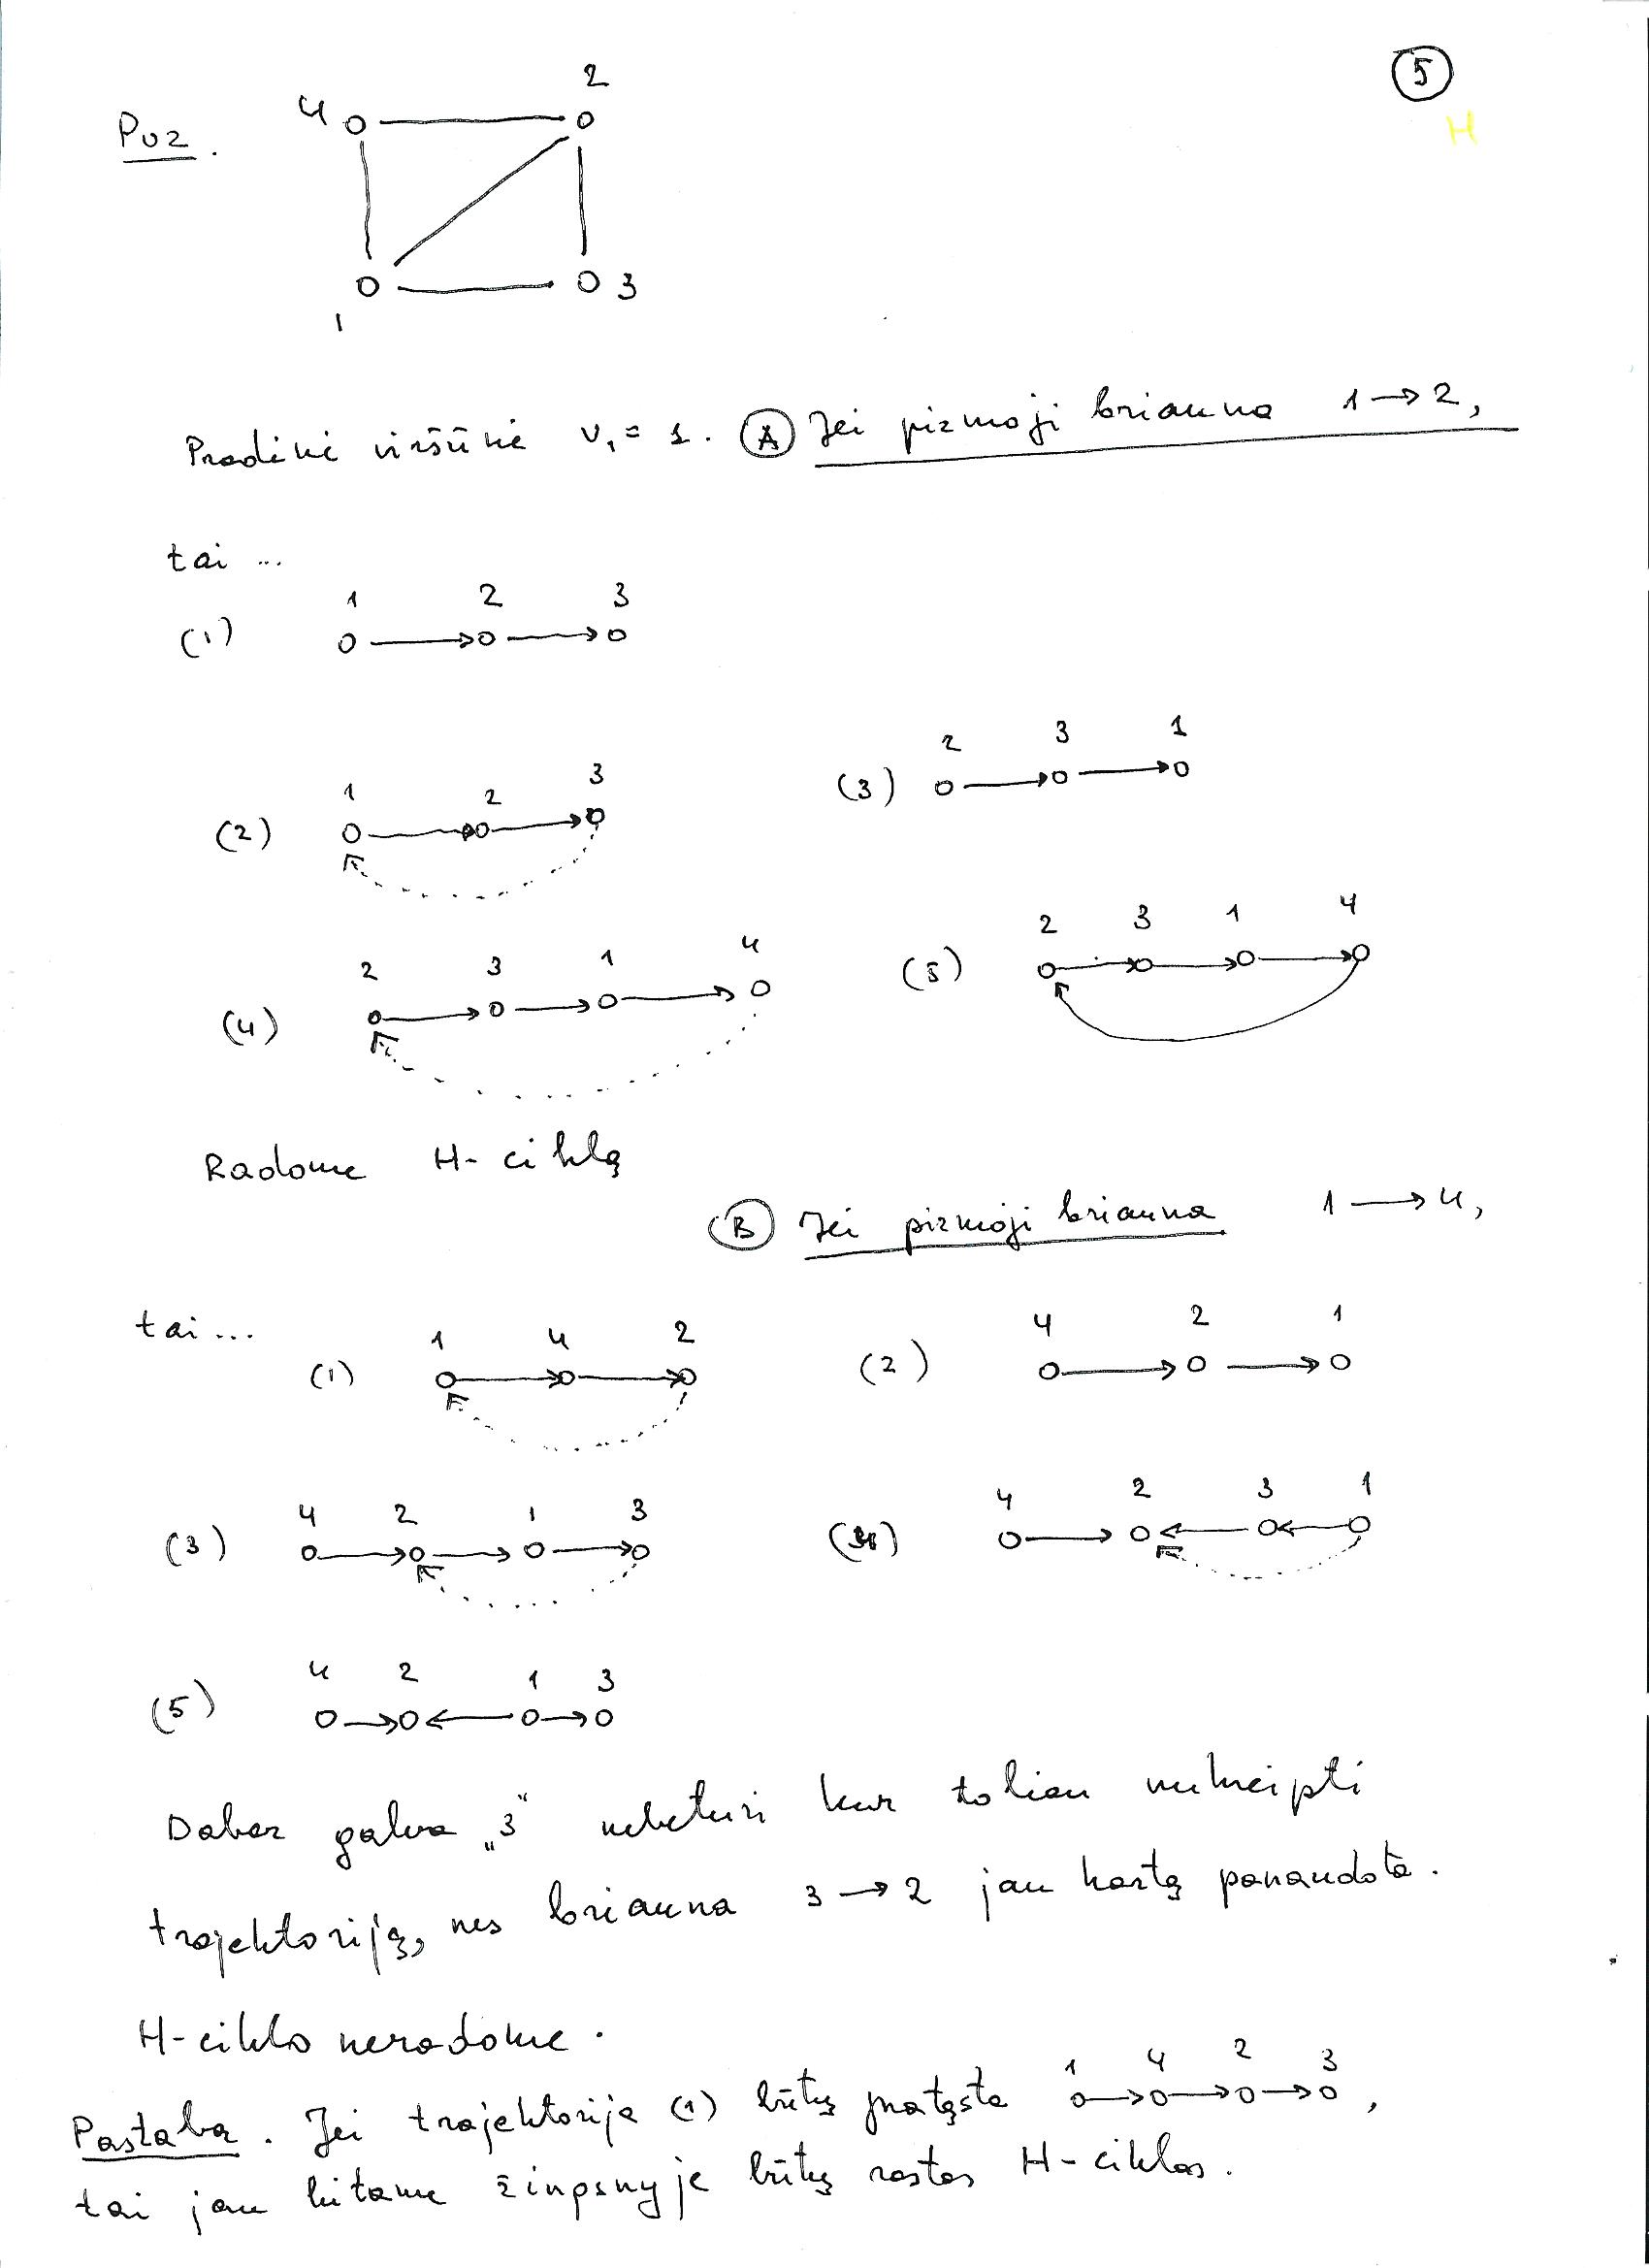 5
H
Pvz.
4 2
1 3
Pradinė viršūnė v₁ = 1. A Jei pirmoji briauna 1 → 2,
tai ...
1 2 3
(1)
2 3 1
(3)
1 2 3
(2)
2 3 1 4
(5)
2 3 1 4
(4)
Radome H-ciklą
B Jei pirmoji briauna 1 → 4,
tai ...
1 4 2
(1)
4 2 1
(2)
4 2 1 3
(3)
4 2 3 1
4 2 1 3
(5)
Dabar galva „3“ nebeturi kur toliau nukreipti
trajektoriją, nes briauna 3 → 2 jau kartą panaudota.
H-ciklo neradome.
1 4 2 3
Pastaba. Jei trajektorija (1) būtų pratęsta ,
tai jau kitame žingsnyje būtų rastas H-ciklas.